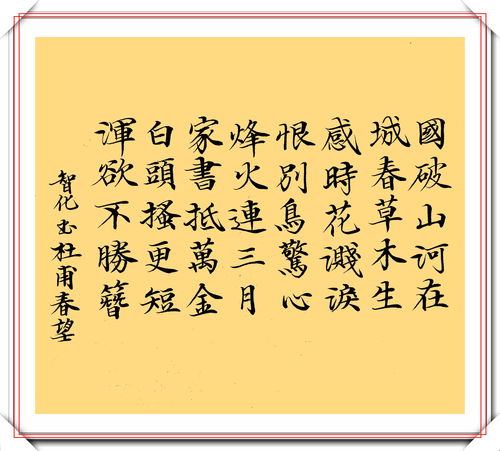 國破山河在
城春草木生
感時花濺淚
恨別鳥驚心
烽火連三月
家書抵萬金
白頭搔更短
渾欲不勝簪
智化書杜甫春望